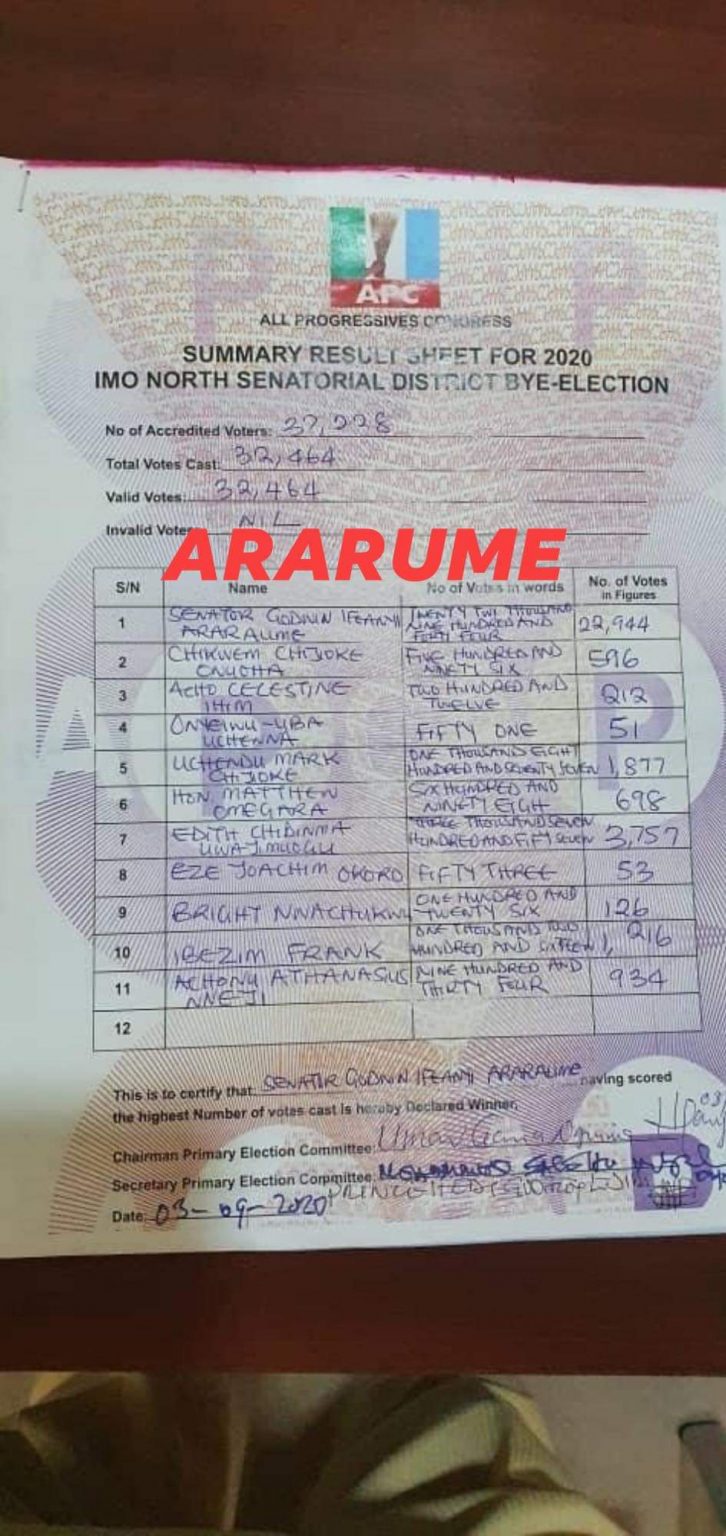 APC
ALL PROGRESSIVES CONGRESS
SUMMARY RESULT SHEET FOR 2020
IMO NORTH SENATORIAL DISTRICT BYE-ELECTION
No of Accredited Voters: 37,228
Total Votes Cast: 32,464
Valid Votes: 32,464
Invalid Votes NIL
ARARUME
S/N Name No of Votes in words No. of Votes in Figures
1 SENATOR GODWIN IFEANYI ARARAUME TWENTY TWO THOUSAND NINE HUNDRED AND FORTY FOUR 22,944
2 CHIKWEM CHIJIOKE ONUOHA FIVE HUNDRED AND NINETY SIX 596
3 ACHO CELESTINE IHIM TWO HUNDRED AND TWELVE 212
4 ONYEIWU-UBA UCHENNA FIFTY ONE 51
5 UCHENDU MARK CHIJIOKE ONE THOUSAND EIGHT HUNDRED AND SEVENTY SEVEN 1,877
6 HON. MATTHEW OMEGARA SIX HUNDRED AND NINETY EIGH 698
7 EDITH CHIDINMA UWAJIMUOGU THREE THOUSAND SEVEN HUNDRED AND FIFTY SEVEN 3,757
8 EZE JOACHIM OKORO FIFTY THREE 53
9 BRIGHT NWACHUKWU ONE HUNDRED AND TWENTY SIX 126
10 IBEZIM FRANK ONE THOUSAND TWO HUNDRED AND SIXTEEN 1,216
11 ACHONU ATHANASUS NNEJI NINE HUNDRED AND THIRTY FOUR 934
12
This is to certify that SENATOR GODWIN IFEANYI ARARAUME having scored
the highest Number of votes cast is hereby Declared Winner.
Chairman Primary Election Committee:
Secretary Primary Election Committee:
Date: 03-09-2020